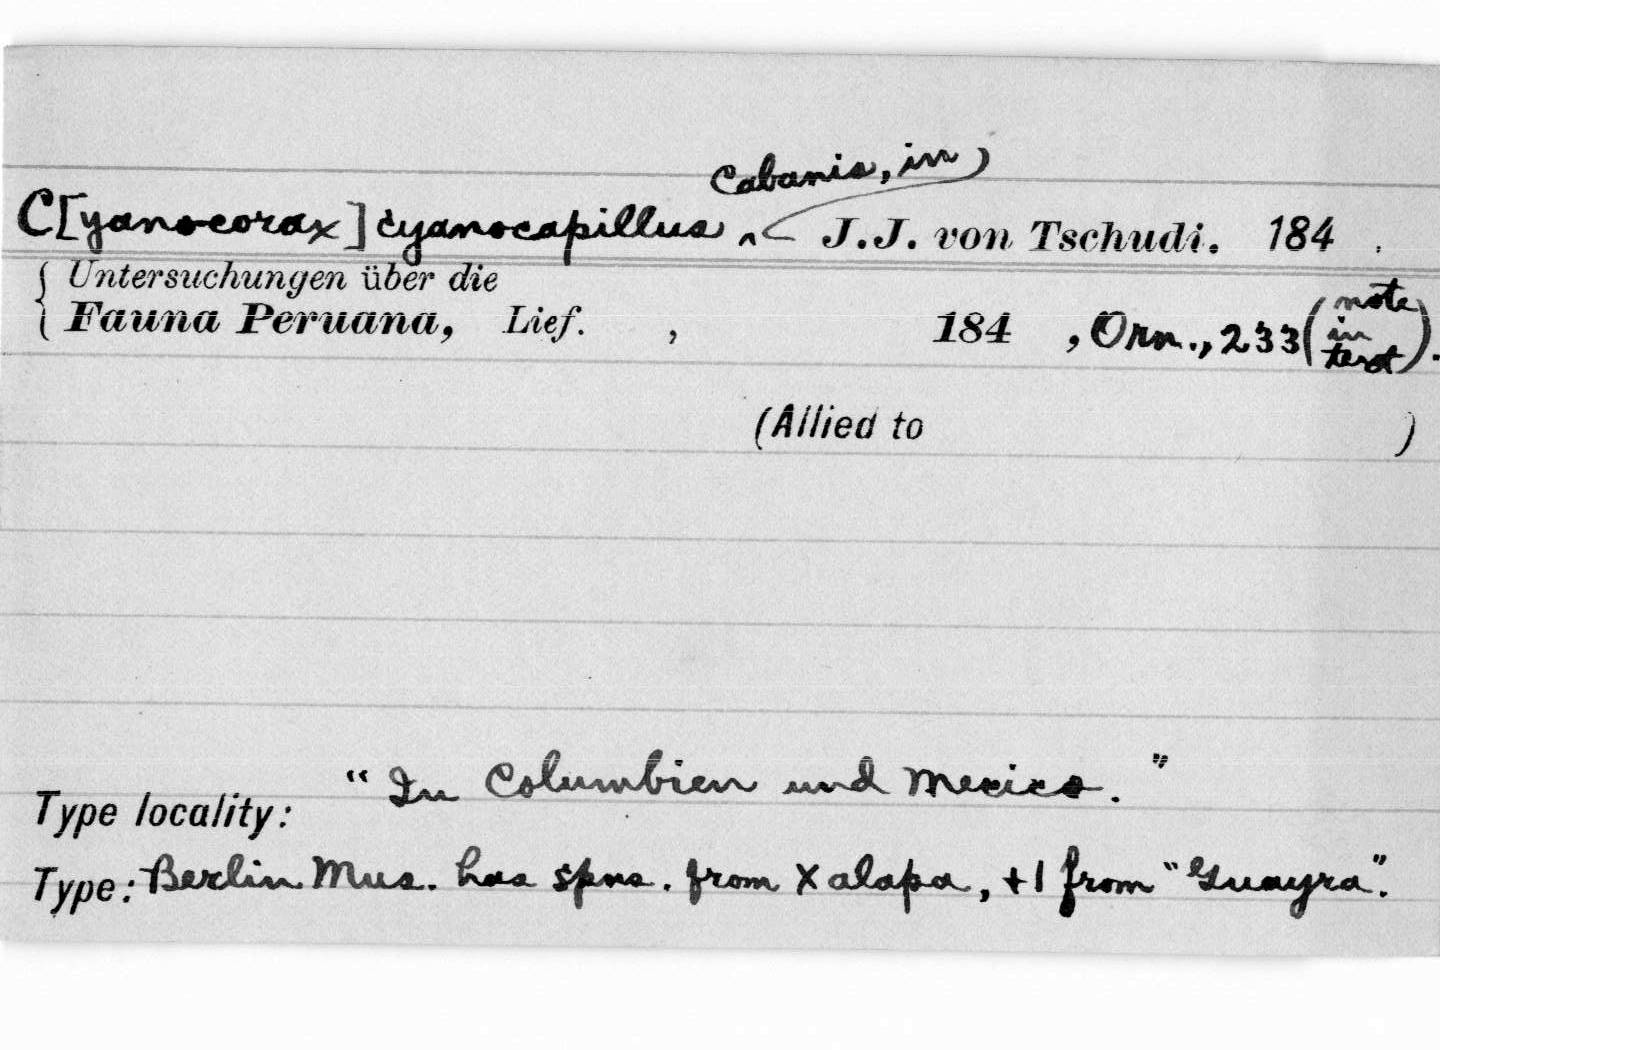 Cabanis, in)
C[yanocorax] cyanocapillus ‸ J.J. von Tschudi. 184 .
{ Untersuchungen über die
Fauna Peruana, Lief. , 184 , Orn., 233 (note in text).
(Allied to )
Type locality: "In Columbien und Mexico."
Type: Berlin Mus. has spns. from Xalapa, +1 from "Guayra".